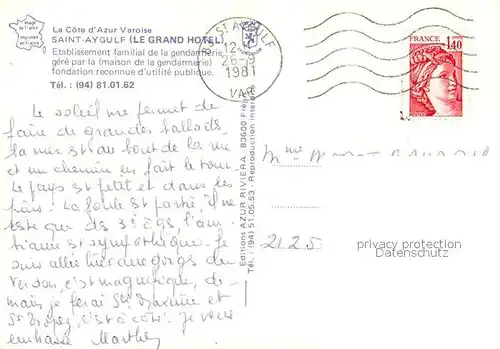 Image de France
imprimé en France
La Côte d'Azur Varoise
SAINT-AYGULF (LE GRAND HOTEL)
Etablissement familial de la gendarmerie
géré par la (maison de la gendarmerie)
fondation reconnue d'utilité publique.
Tél. : (94) 81.01.62
ST AYGULF
12-
26-9
1981
VAR
FRANCE
1,40
Le soleil me permet de
faire de grandes ballades
la mer est au bout de la rue
et un chemin en fait le tour.
Le pays est petit et dans les
pins. La foule est partie, il ne
reste que des 3e âges, l'am-
biance est sympathique. Je
suis allée hier aux gorges du
Verdon, c'est magnifique, de-
main je ferai Ste Maxime et
St Tropez, c'est à côté. Je vous
embrasse Marthe
Editions AZUR RIVIERA - 83600 Fréjus
Tél. : (94) 51.05.53 - Reproduction interdite
Mme
2125
privacy protection
Datenschutz